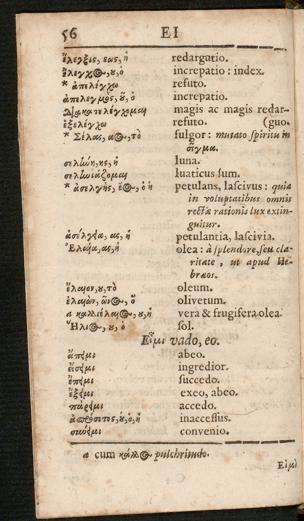 56 EI
ἔλεγξις, εως, ἡ redargutio.
ἔλεγχος, ου, ὁ increpatio: index.
* ἀπελέγχω refuto.
ἀπελεγμὸς, οῦ, ὁ increpatio.
Διακατελέγχομαι magis ac magis redar-
ἐξελέγχω refuto. (guo.
* Σέλας, αος, τὸ fulgor: mutato spiritu in
σῖγμα.
σελήνη, ης, ἡ luna.
σεληνιάζομαι lunaticus sum.
* ἀσελγὴς, έος, ὁ ἡ petulans, lascivus: quia
in voluptatibus omnis
rectæ rationis lux extin-
guitur.
ἀσέλγεια, ας, ἡ petulantia, lascivia.
Ἐλαία, ας, ἡ olea: à splendore, seu cla-
ritate, ut apud He-
bræos.
ἔλαιον, ου, τὸ oleum.
ἐλαιὼν, ῶνος, ὁ olivetum.
a καλλιέλαιος, ου, ἡ vera & frugifera olea.
Ἥλιος, ου, ὁ sol.
Εἶμι vado, eo.
ἄπειμι abeo.
εἴσειμι ingredior.
ἔπειμι succedo.
ἔξειμι exeo, abeo.
πάρειμι accedo.
ἀπρόσιτος, ου, ὁ, ἡ inaccessus.
σύνειμι convenio.
a cum κάλλος pulchritudo.
Εἰμὶ